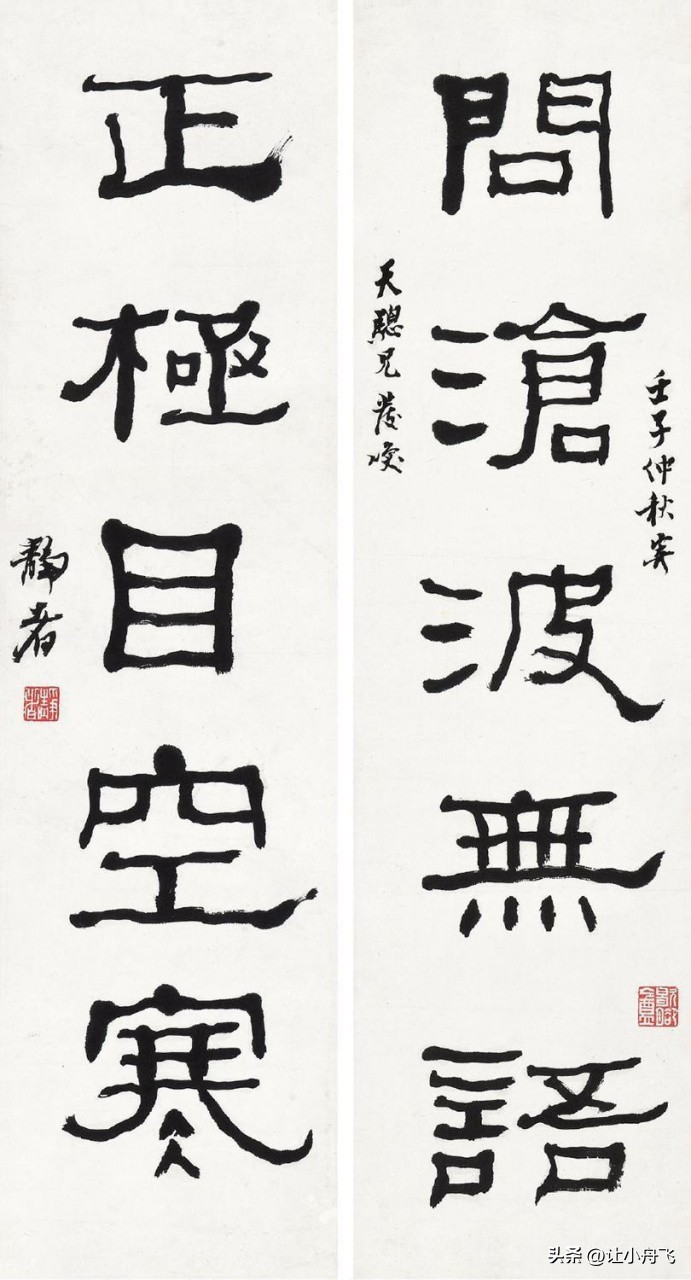 問滄波無語
壬子仲秋寅
天驄兄發噱
正極目空寒
靜者
靜者
头条 @让小舟飞